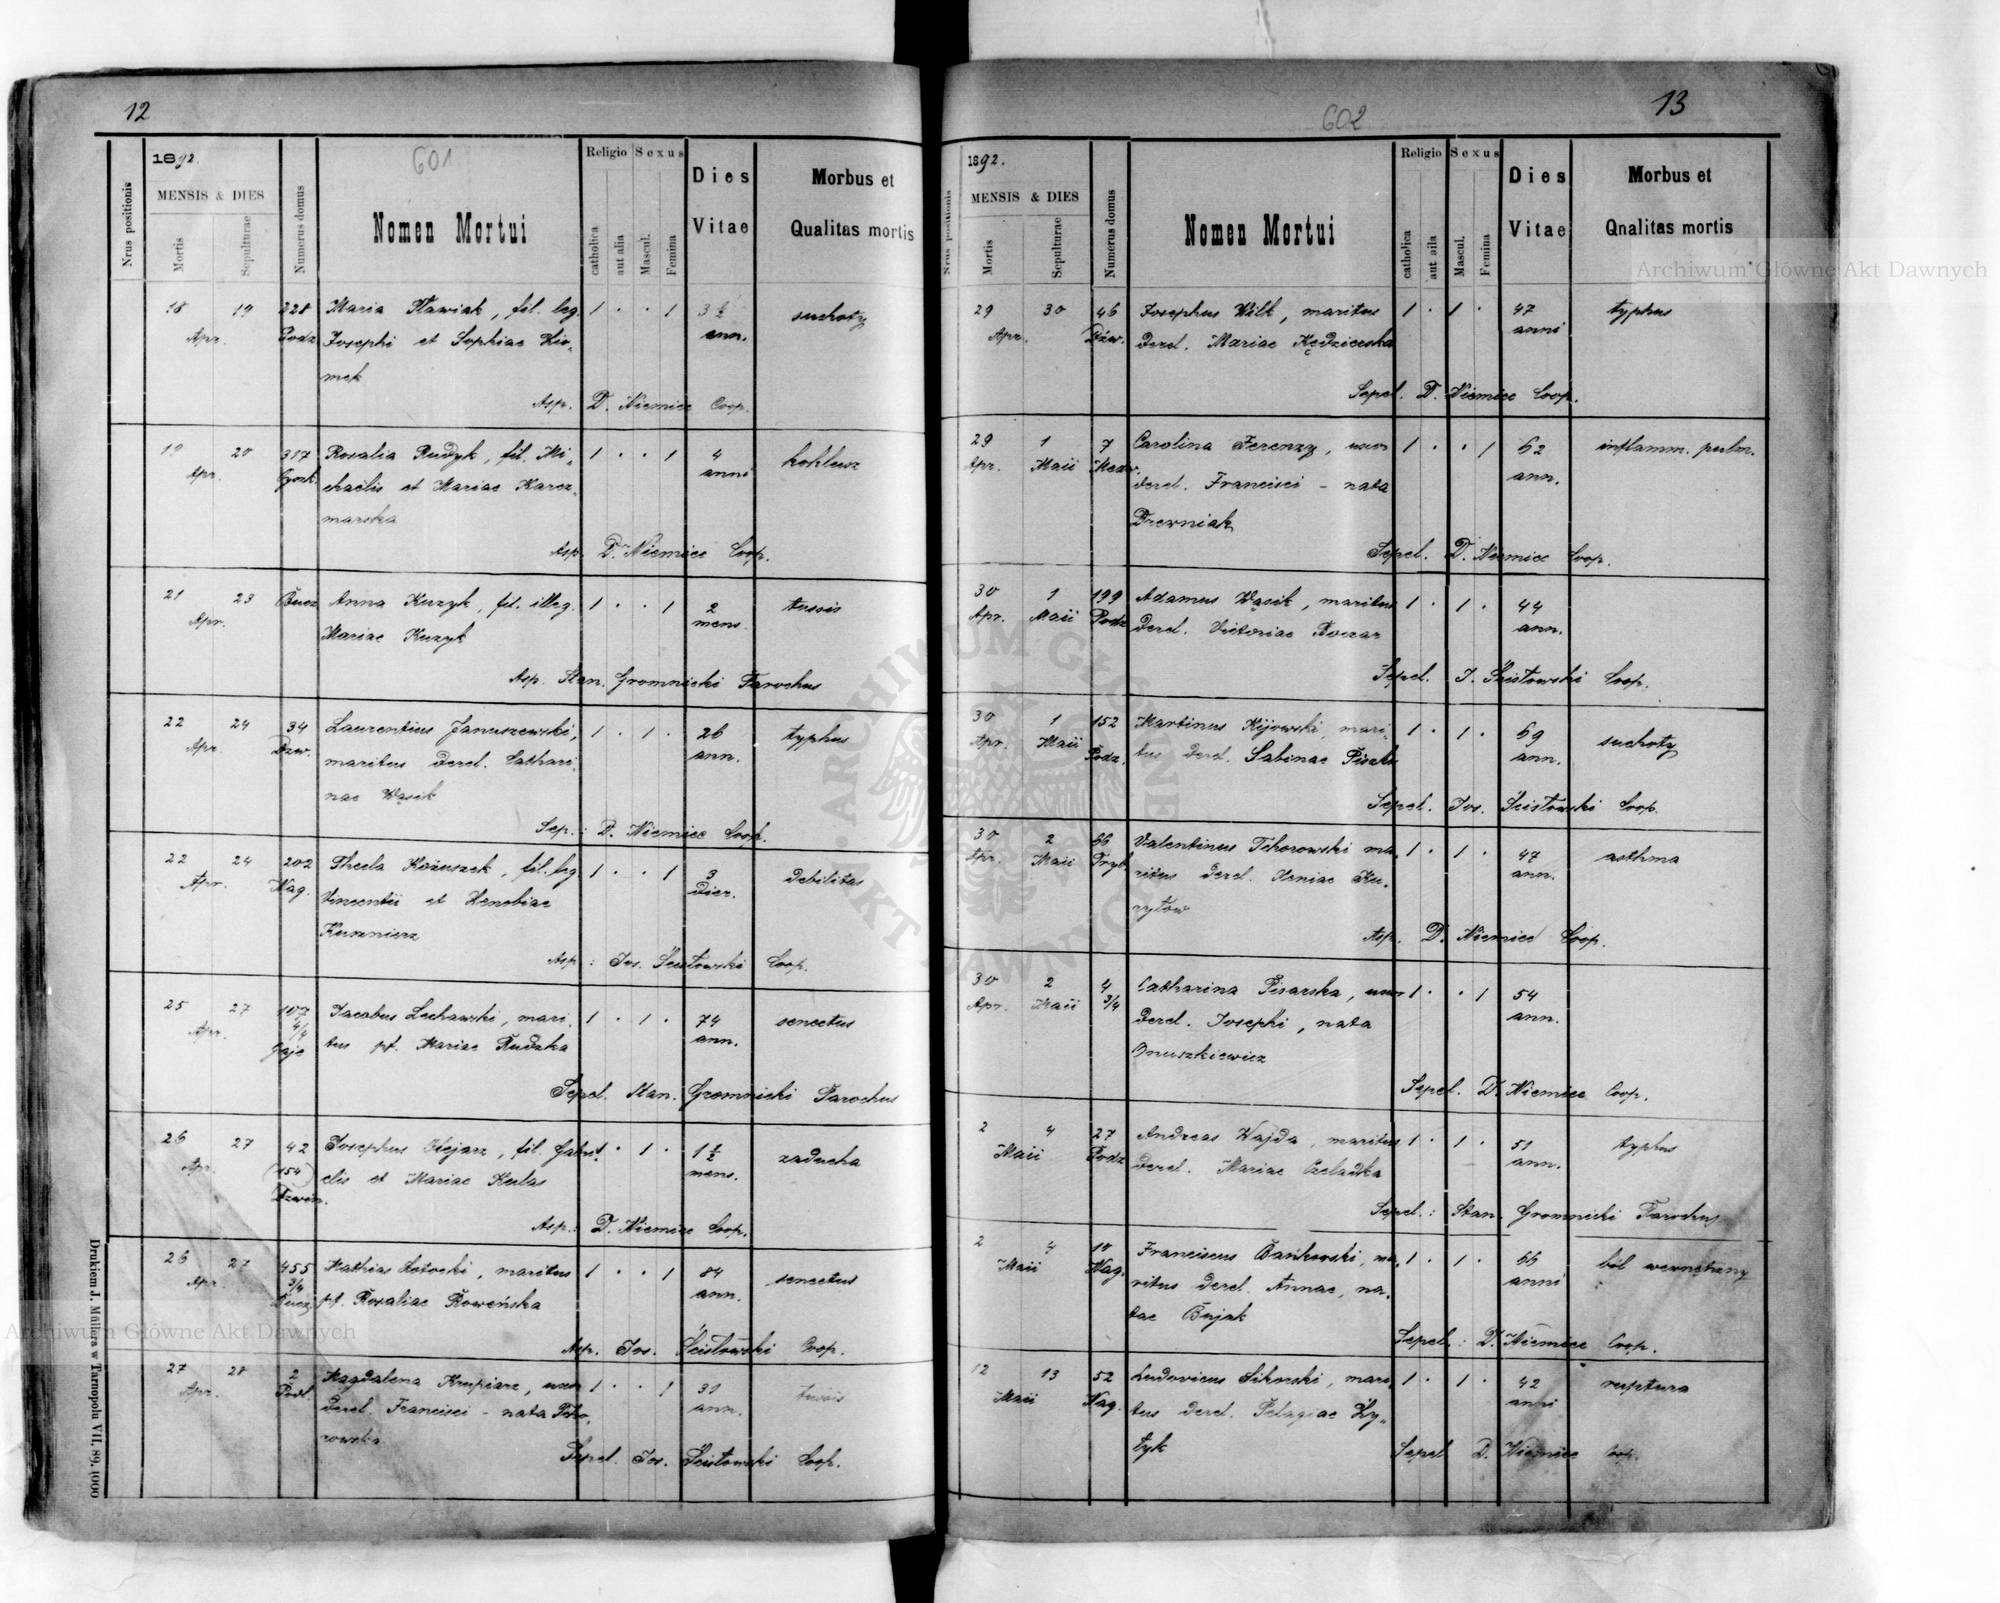 12
601
1892.
Nrus positionis
MENSIS & DIES
Mortis
Sepulturae
Numerus domus
Nomen Mortui
Religio
Sexus
catholica
aut alia
Mascul.
Femina
Dies Vitae
Morbus et
Qualitas mortis
18 19 228 Maria Stawiak, fil. leg. 1 . . 1 3½ suchoty
Apr. Podz Josephi et Sophiae Kli„ ann.
mek
Asp. D. Niemiec Coop.
19 20 317 Rosalia Rudyk, fil. Mi„ 1 . . 1 4 koklusz
Apr. chaelis et Mariae Karcz„ anni
marska
Asp. D. Niemiec Coop.
21 23 Bucz Anna Kuzyk, fil. illeg. 1 . . 1 2 tussis
Apr. Mariae Kuzyk mens.
Asp. Stan. Gromnicki Parochus
22 24 34 Laurentius Januszewski, 1 . 1 . 26 typhus
Apr. Dzw. maritus derel. Cathari„ ann.
nae Wąsik
Sep.: D. Niemiec Coop.
22 24 202 Thecla Kożuszek, fil. leg 1 . . 1 3 debilitas
Apr. Nag. Vincentii et Zenobiae dier.
Kusznierz
Asp.: Jos. Ścisłowski Coop.
25 27 107 Jacobus Lechawski, mari„ 1 . 1 . 74 senectus
Apr. 4/4 Gaje tus pt. Mariae Rudzka ann.
Sepel. Stan. Gromnicki Parochus
26 27 42 Josephus Klejarz, fil. Gabri„ 1 . 1 . 1½ zaducha
Apr. (154) Dzwin. elis et Mariae Kulas mens.
Asp.: D. Niemiec Coop.
26 27 455 Mathias Łotocki, maritus 1 . . 1 84 senectus
Apr. 3/4 Bucz. pt. Rosaliae Roweńska ann.
Asp. Jos. Ścisłowski Coop.
27 28 2 Magdalena Krupiarz, uxor 1 . . 1 30 tussis
Apr. Podl. derel. Francisci - nata Tcho„ ann.
rowska
Sepel. Jos. Ścisłowski Coop.
Drukiem J. Müllera w Tarnopolu VII. 89. 1000
13
602
1892.
Nrus positionis
MENSIS & DIES
Mortis
Sepulturae
Numerus domus
Nomen Mortui
Religio
Sexus
catholica
aut aila
Mascul.
Femina
Dies Vitae
Morbus et
Qnalitas mortis
29 30 46 Josephus Wilk, maritus 1 . 1 . 47 typhus
Apr. Dzw. derel. Mariae Kędzierska anni
Sepel. D. Niemiec Coop.
29 1 7 Carolina Ferenzy, uxor 1 . . 1 62 inflamm. pulm.
Apr. Maii Medw. derel. Francisci - nata ann.
Drewniak
Sepel. D. Niemiec Coop.
30 1 199 Adamus Wąsik, maritus 1 . 1 . 44
Apr. Maii Podz derel. Victoriae Boczar ann.
Sepel. J. Ścisłowski Coop.
30 1 152 Martinus Kijowski, mari„ 1 . 1 . 69 suchoty
Apr. Maii Podz. tus derel. Sabinae ann.
Sepel. Jos. Ścisłowski Coop.
30 2 66 Valentinus Tchorowski ma„ 1 . 1 . 47 asthma
Apr. Maii Tryb. ritus derel. Xeniae Ku„ ann.
ryłów
Asp. D. Niemiec Coop.
30 2 4 Catharina Pisarska, uxor 1 . . 1 54
Apr. Maii 3/4 derel. Josephi, nata ann.
Onuszkiewicz
Sepel. D. Niemiec Coop.
2 4 27 Andreas Wajda, maritus 1 . 1 . 51 typhus
Maii Podz derel. Mariae Czeladka ann.
Sepel.: Stan. Gromnicki Parochus
2 4 10 Franciscus Bańkowski, ma„ 1 . 1 . 66 ból wewnętrzny
Maii Nag. ritus derel. Annae, na„ anni
tae Bujak
Sepel.: D. Niemiec Coop.
12 13 52 Ludovicus Sikorski, mari„ 1 . 1 . 42 ruptura
Maii Nag. tus derel. Pelagiae Zy„ anni
tyk
Sepel D. Niemiec Coop.
Archiwum Główne Akt Dawnych
Archiwum Główne Akt Dawnych
ARCHIWUM GŁÓWNE AKT DAWNYCH